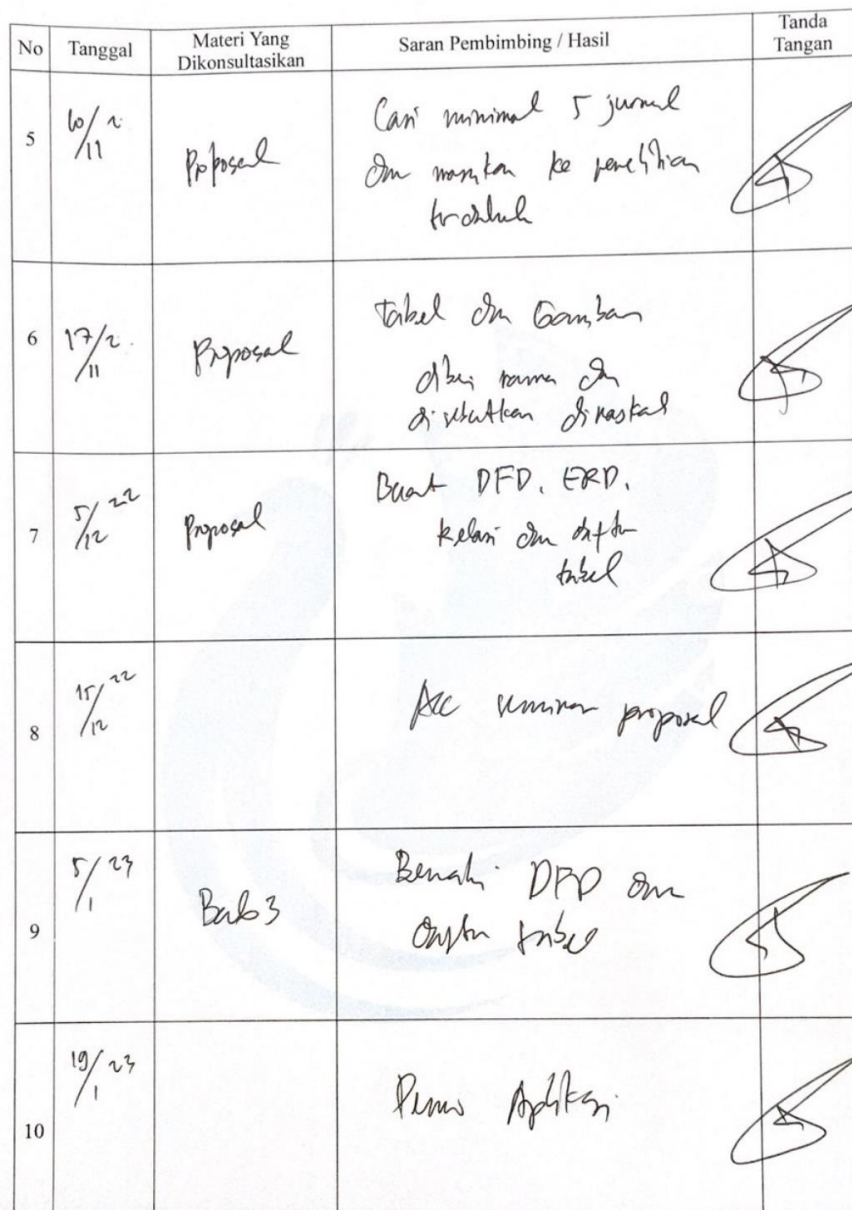 No Tanggal Materi Yang Dikonsultasikan Saran Pembimbing / Hasil Tanda Tangan
5 10/11 Proposal Cari minimal 5 jurnal
dan masukan ke penelitian
terdahulu
6 17/11 Proposal Tabel dan Gambar
diberi nama dan
disebutkan dinaskah
7 5/12 22 Proposal Buat DFD, ERD,
Relasi dan daftar
tabel
8 15/12 22 Acc seminar proposal
9 5/1 23 Bab 3 Benahi DFD dan
daftar tabel
10 19/1 23 Demo Aplikasi